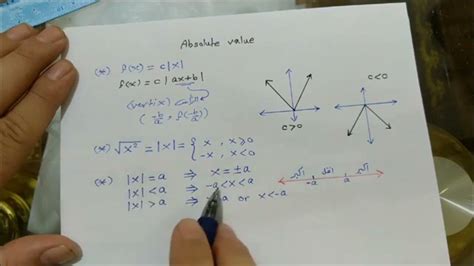 Absolute value
(*) f(x) = c|x|
f(x) = c|ax+b|
(vertix)
(-b/a, f(-b/a))
c>0
c<0
(*) √x² = |x| = { x , x ≥ 0
-x , x < 0
(*) |x| = a ⇒ x = ±a
|x| < a ⇒ -a < x < a
|x| > a ⇒ a or x < -a
-a a